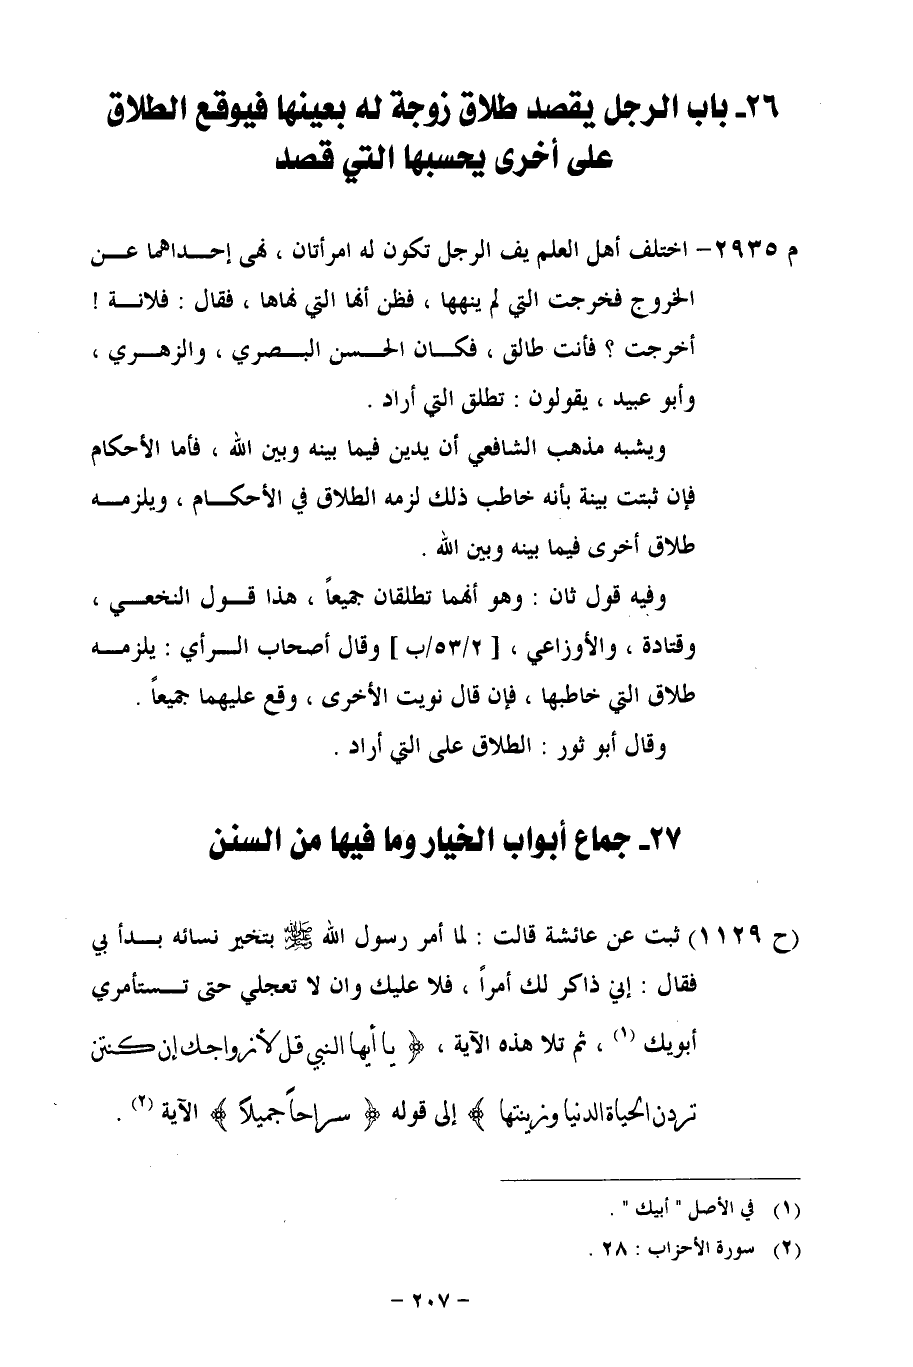 ٢٦ـ باب الرجل يقصد طلاق زوجة له بعينها فيوقع الطلاق
على أخرى يحسبها التي قصد
م ٢٩٣٥- اختلف أهل العلم يف الرجل تكون له امرأتان ، نهى إحـداهما عـن
الخروج فخرجت التي لم ينهها ، فظن أنها التي نهاها ، فقال : فلانـة !
أخرجت ؟ فأنت طالق ، فكـان الحـسن البـصري ، والزهـري ،
وأبو عبيد ، يقولون : تطلق التي أراد .
ويشبه مذهب الشافعي أن يدين فيما بينه وبين الله ، فأما الأحكام
فإن ثبتت بينة بأنه خاطب ذلك لزمه الطلاق في الأحكـام ، ويلزمـه
طلاق أخرى فيما بينه وبين الله .
وفيه قول ثان : وهو أنهما تطلقان جميعاً ، هذا قـول النخعـي ،
وقتادة ، والأوزاعي ، [ ٢/٥٣/ب ] وقال أصحاب الـرأي : يلزمـه
طلاق التي خاطبها ، فإن قال نويت الأخرى ، وقع عليهما جميعاً .
وقال أبو ثور : الطلاق على التي أراد .
٢٧ـ جماع أبواب الخيار وما فيها من السنن
(ح ١١٢٩) ثبت عن عائشة قالت : لما أمر رسول الله ﷺ بتخير نسائه بـدأ بي
فقال : إني ذاكر لك أمراً ، فلا عليك وان لا تعجلي حتى تـستأمري
أبويك (١) ، ثم تلا هذه الآية ، ﴿ يا أيها النبي قل لأزواجك إن كنتن
تردن الحياة الدنيا وزينتها ﴾ إلى قوله ﴿ سراحاً جميلاً ﴾ الآية (٢) .
(١) في الأصل " أبيك " .
(٢) سورة الأحزاب : ٢٨ .
- ٢٠٧ -